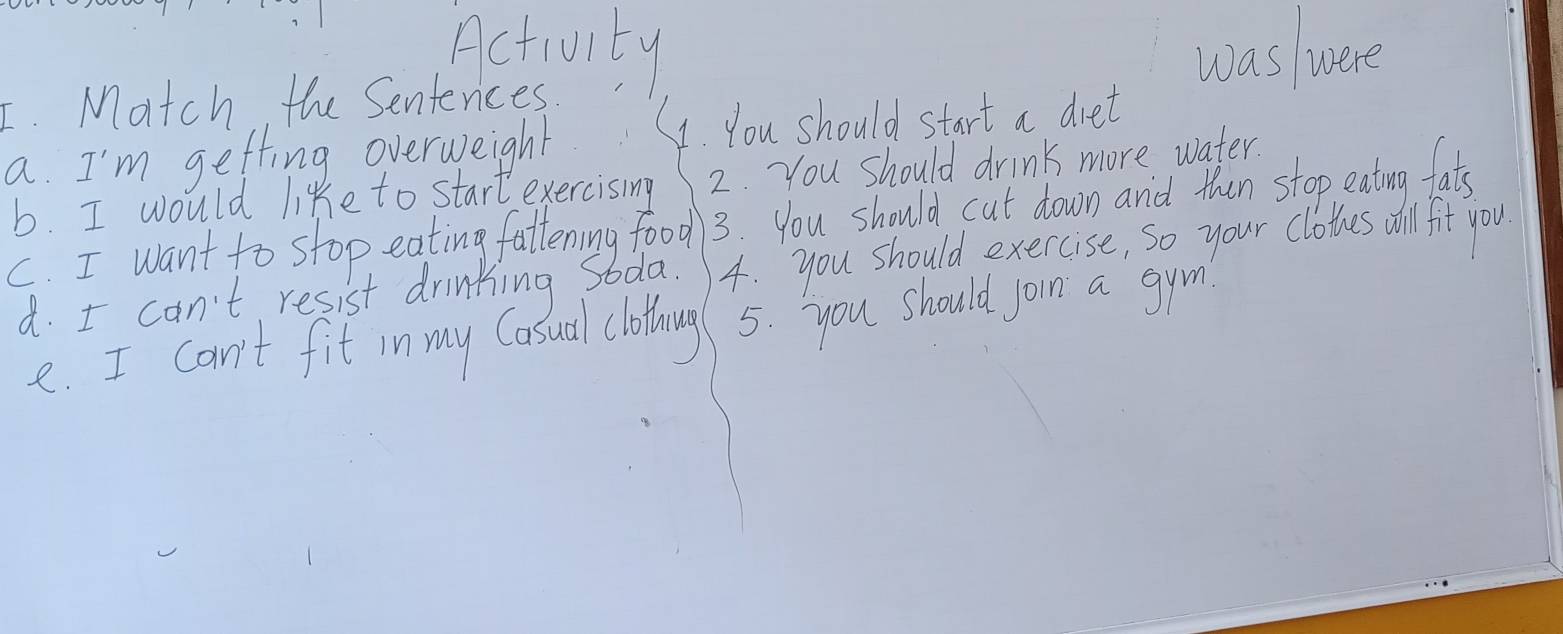 Activity
was/were
I. Match the Sentences.
a. I'm getting overweight
b. I would like to start exercising
c. I want to stop eating fattening food
d. I can't resist drinking Soda.
e. I can't fit in my Casual clothing
1. You should start a diet
2. You should drink more water.
3. You should cut down and then stop eating fats
4. you should exercise, so your clothes will fit you.
5. you should join a gym.